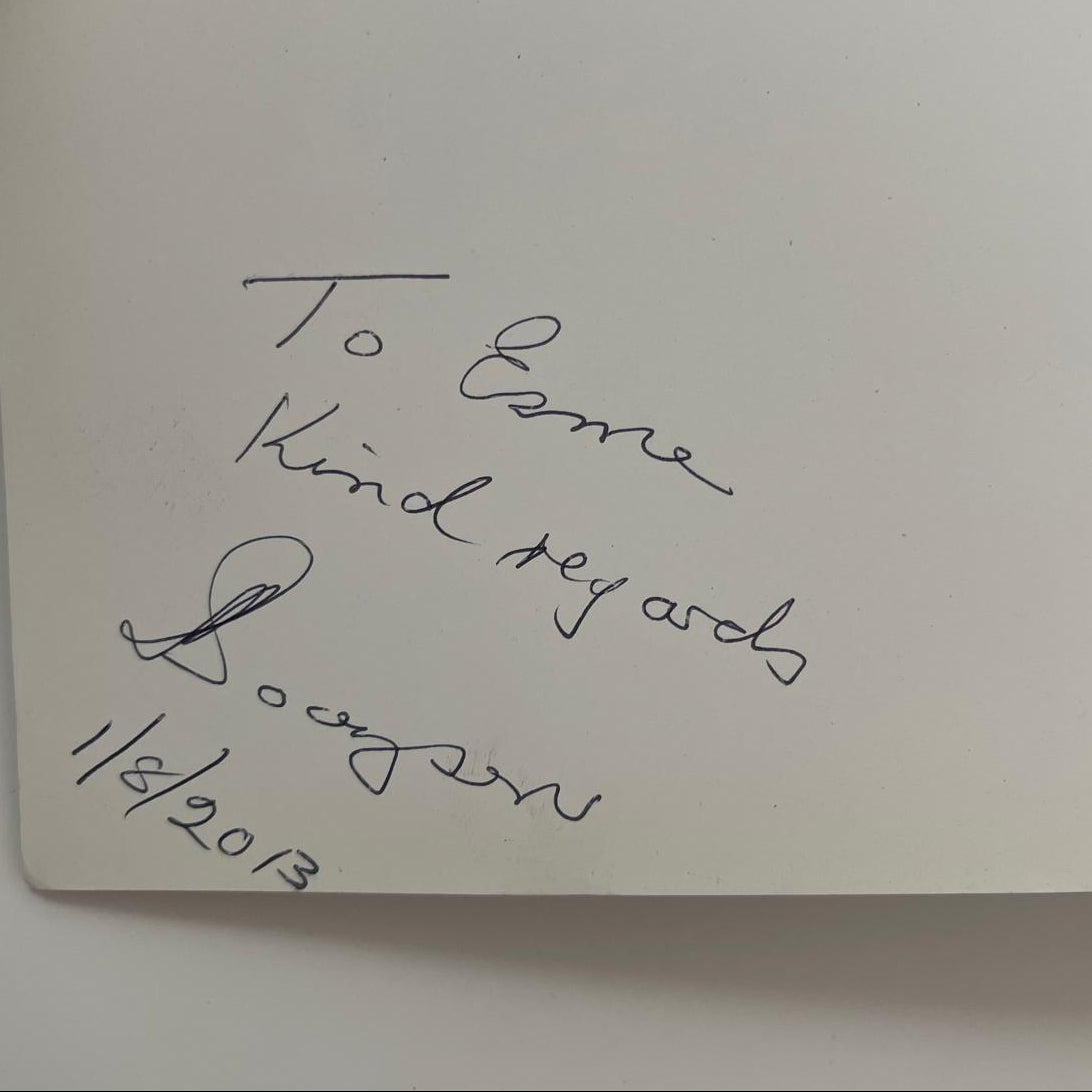 To Esme
Kind regards
1/8/2013